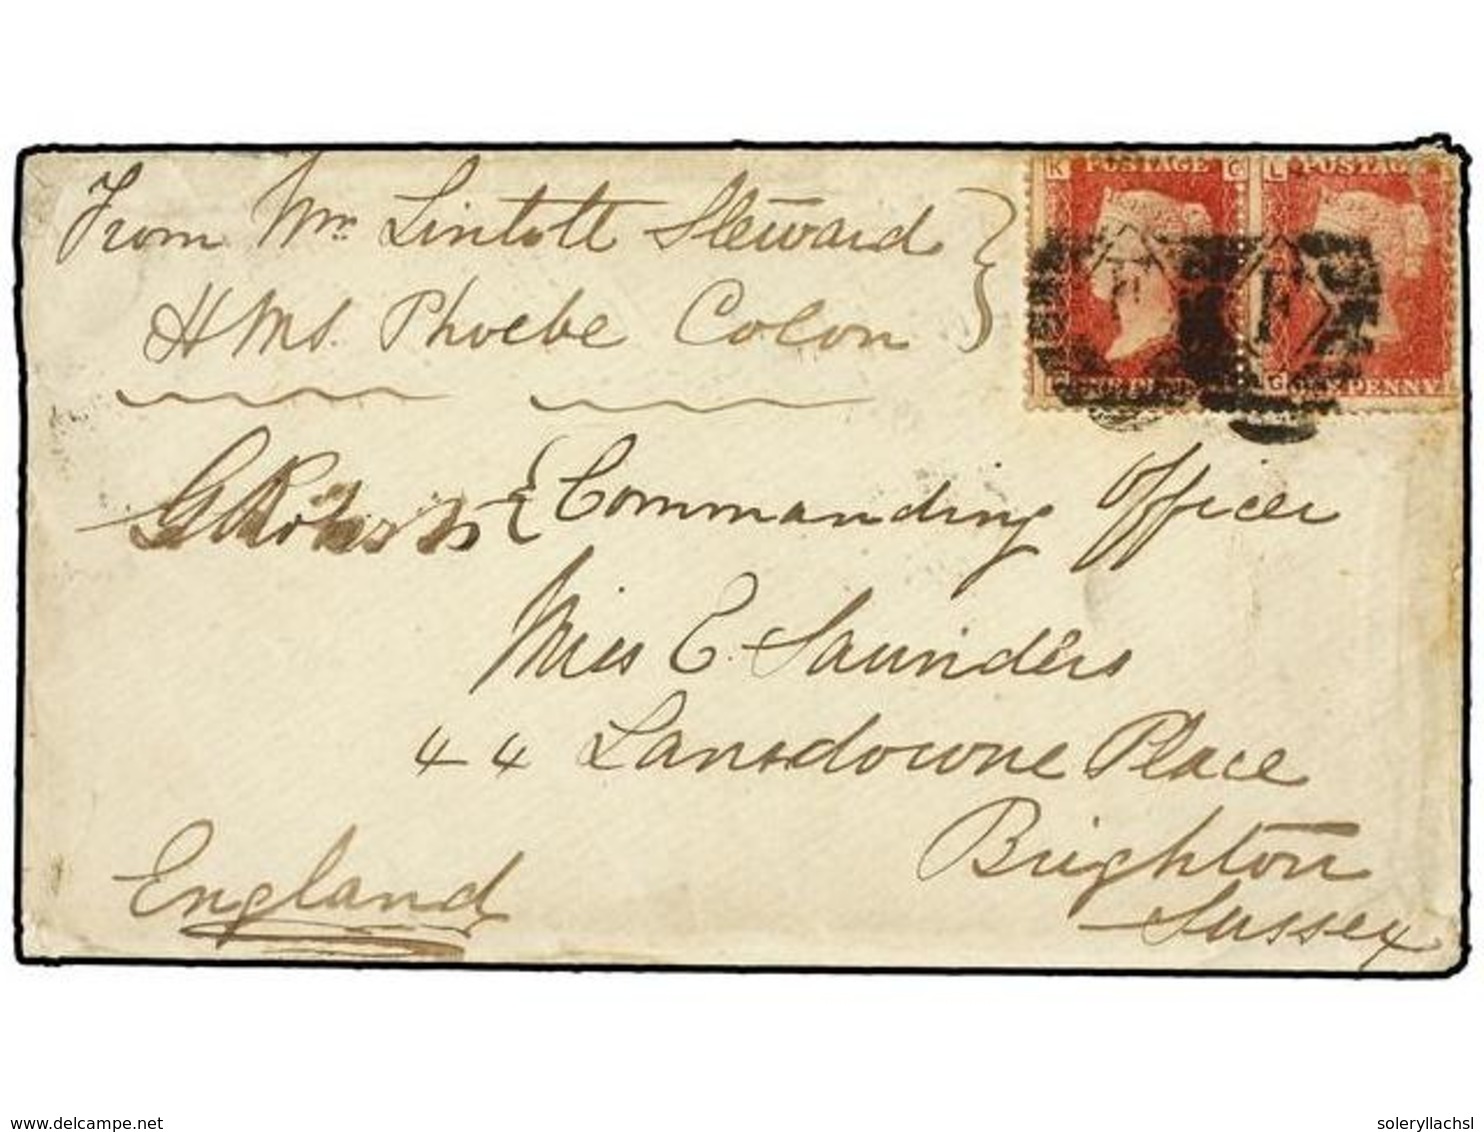 From Wm. Lintott Steward
HMS. Phoebe Colon
Commanding Officer
Miss E. Saunders
44 Lansdowne Place
Brighton
Sussex
England
K POSTAGE G
L POSTAGE
G ONE PENNY
delcampe.net
soleryllachsl